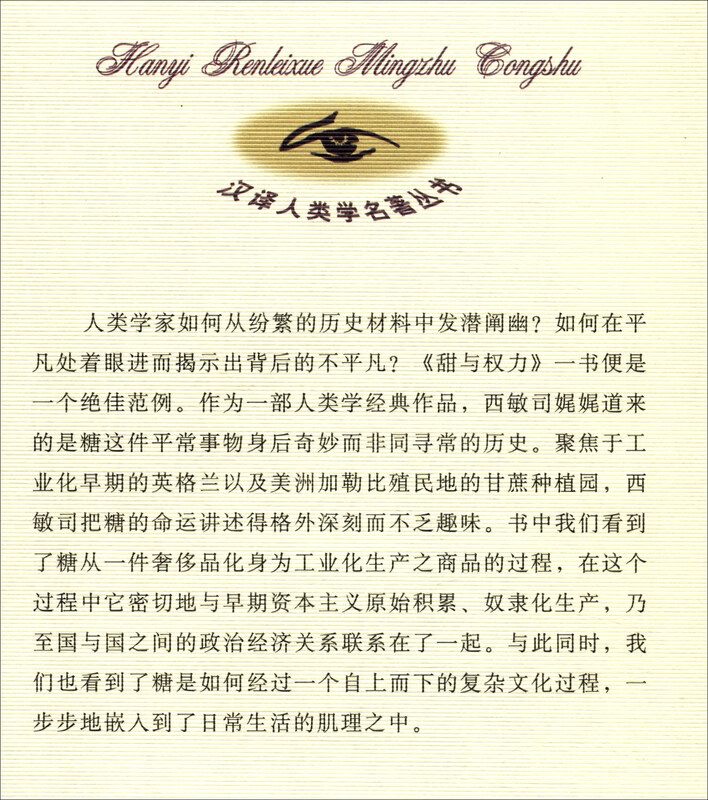 Hanyi Renleixue Mingzhu Congshu
汉译人类学名著丛书
人类学家如何从纷繁的历史材料中发潜阐幽？如何在平
凡处着眼进而揭示出背后的不平凡？《甜与权力》一书便是
一个绝佳范例。作为一部人类学经典作品，西敏司娓娓道来
的是糖这件平常事物身后奇妙而非同寻常的历史。聚焦于工
业化早期的英格兰以及美洲加勒比殖民地的甘蔗种植园，西
敏司把糖的命运讲述得格外深刻而不乏趣味。书中我们看到
了糖从一件奢侈品化身为工业化生产之商品的过程，在这个
过程中它密切地与早期资本主义原始积累、奴隶化生产，乃
至国与国之间的政治经济关系联系在了一起。与此同时，我
们也看到了糖是如何经过一个自上而下的复杂文化过程，一
步步地嵌入到了日常生活的肌理之中。